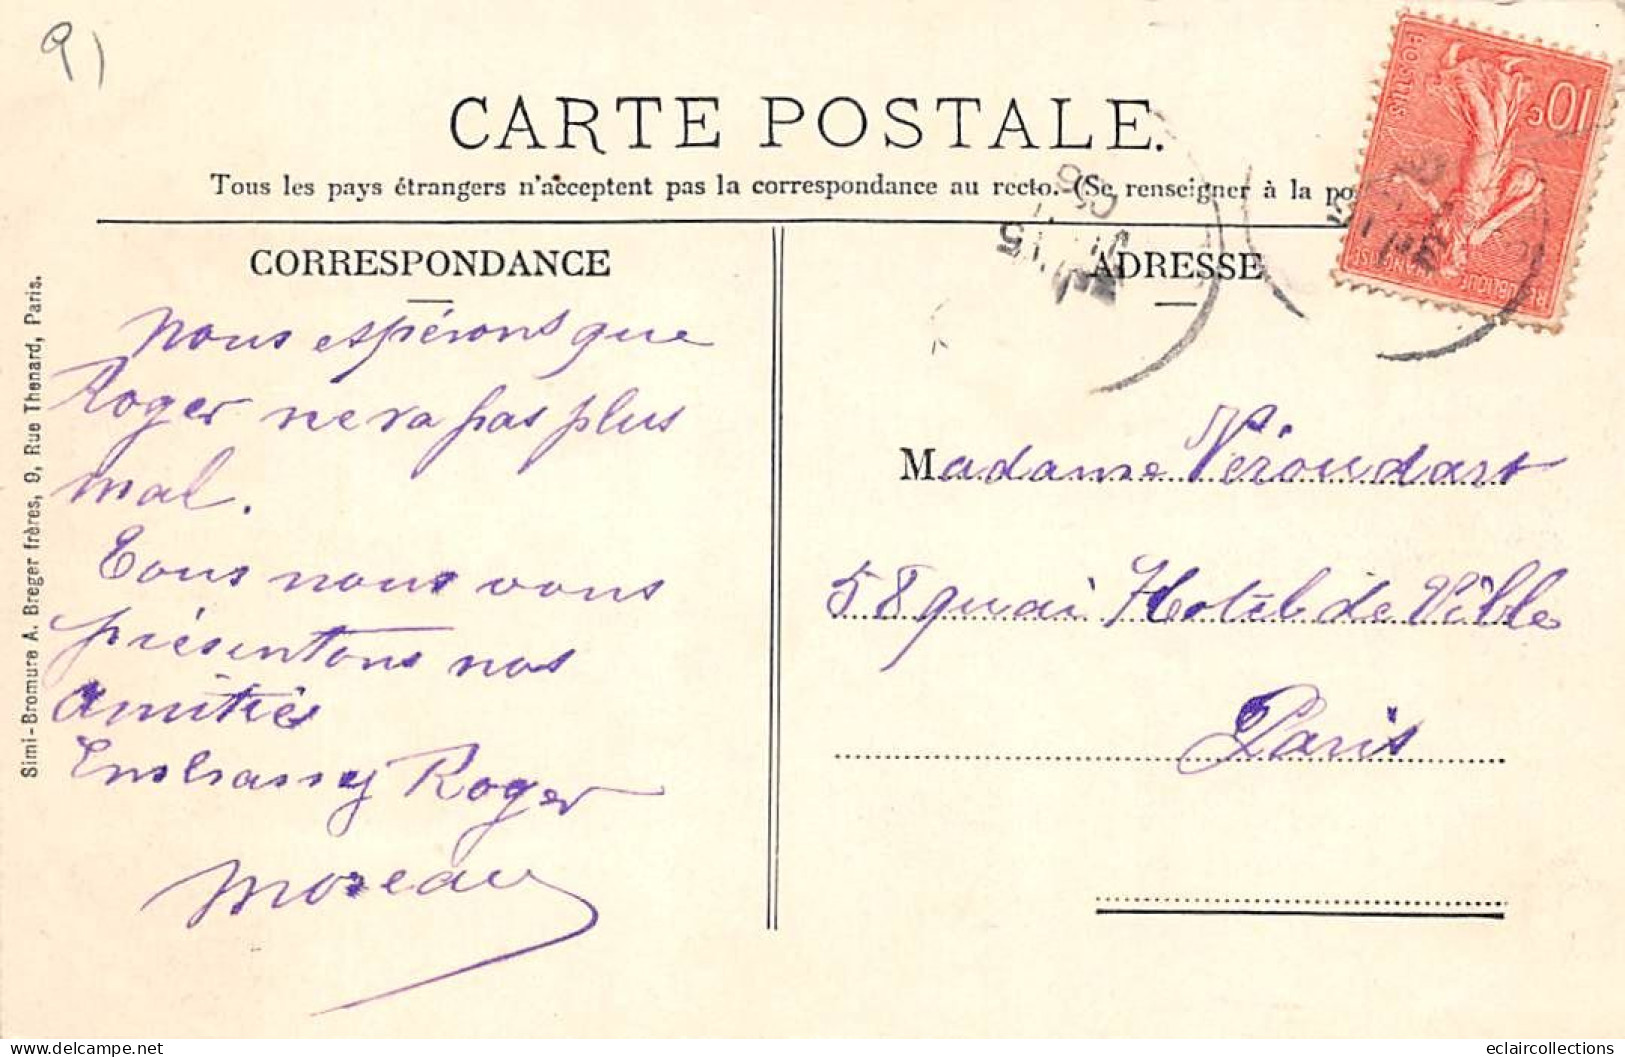 91
CARTE POSTALE.
Tous les pays étrangers n'acceptent pas la correspondance au recto. (Se renseigner à la po
CORRESPONDANCE
nous espérons que
Roger ne va pas plus
mal.
Tous nous vous
présentons nos
amitiés
Embrassez Roger
Moreau
ADRESSE
Madame Véroudart
58 quai Hotel de Ville
Paris
Simi-Bromure A. Breger frères, 9, Rue Thenard, Paris.
POSTES
10c
REPUBLIQUE FRANÇAISE
15
06
www.delcampe.net
eclaircollections